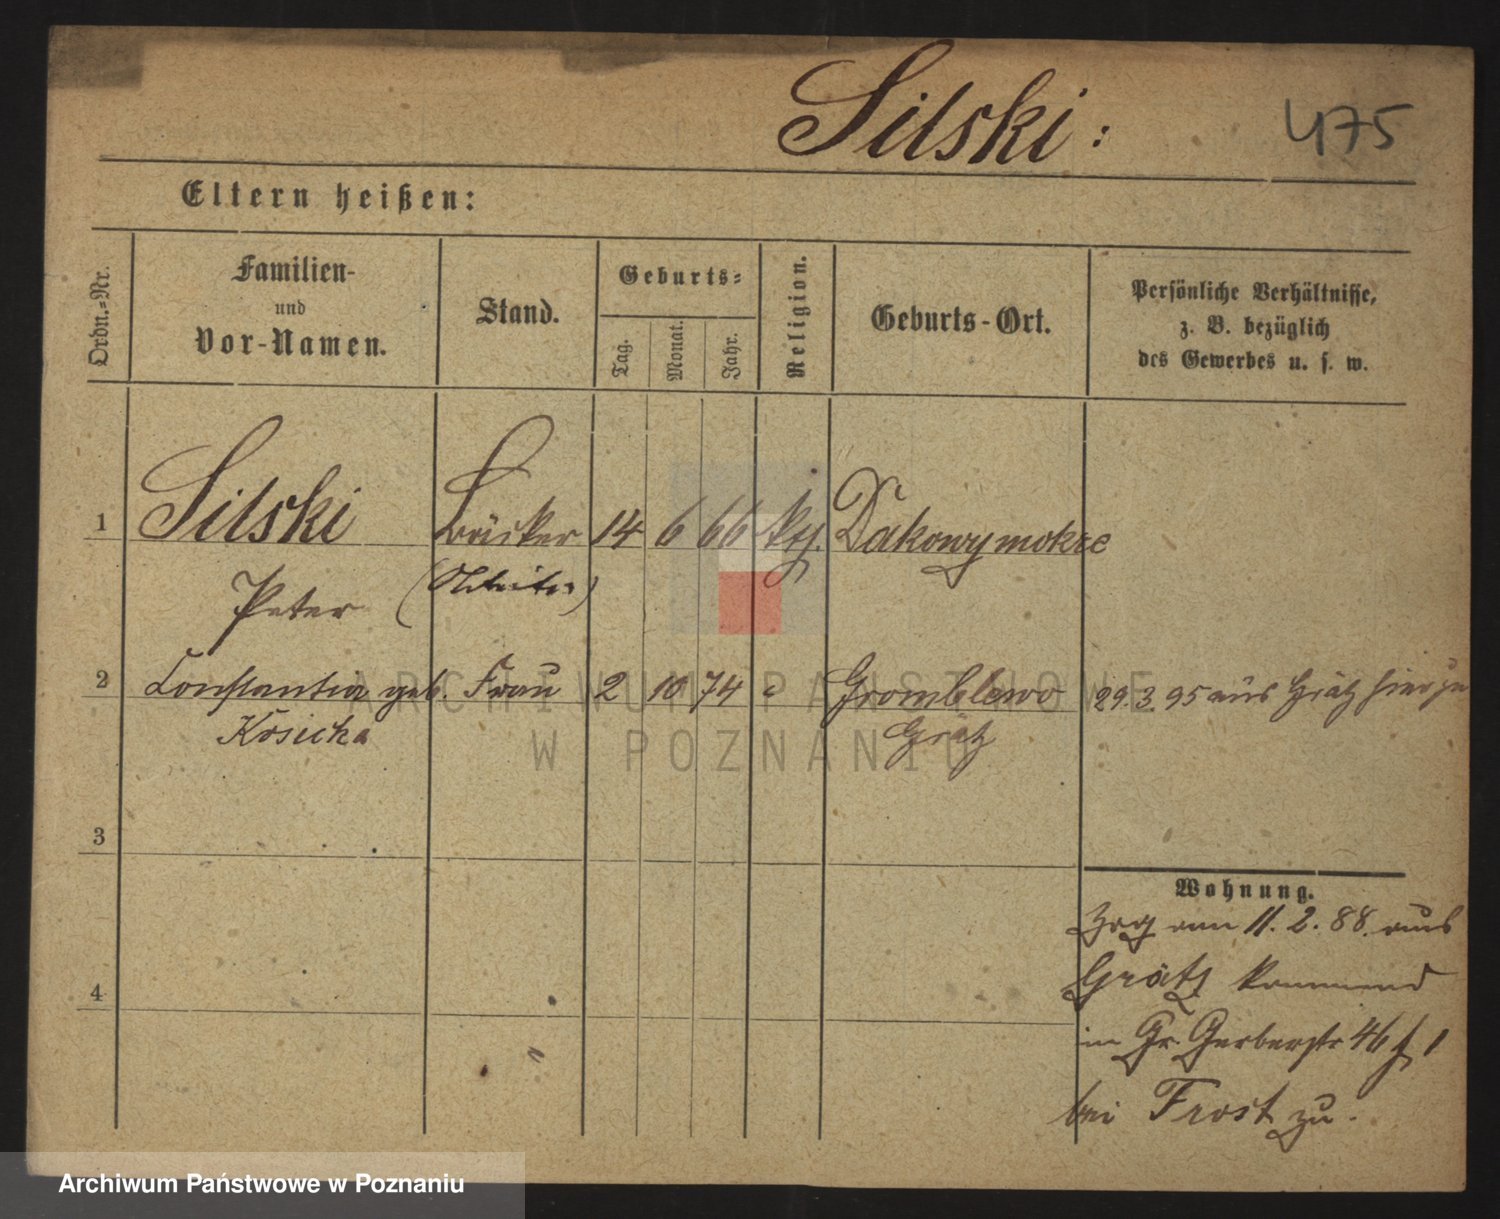 Silski:
475
Eltern heißen:
Ordn.=Nr.
Familien-
und
Vor-Namen.
Stand.
Geburts=
Tag.
Monat.
Jahr.
Religion.
Geburts-Ort.
Persönliche Verhältnisse,
z. B. bezüglich
des Gewerbes u. s. w.
1 Silski Bäcker 14 6 66 kth. Dakowymokre
Peter
2 Constantia geb. Frau 2 10 74 Gromblewo 29.3.95 aus Grätz hier zu
Kosicka Grätz
3
Wohnung.
Zog am 11. 2. 88. aus
4 Grätz kommend
in Gr. Gerberstr 46 1
bei Frost zu.
ARCHIWUM PAŃSTWOWE
W POZNANIU
Archiwum Państwowe w Poznaniu